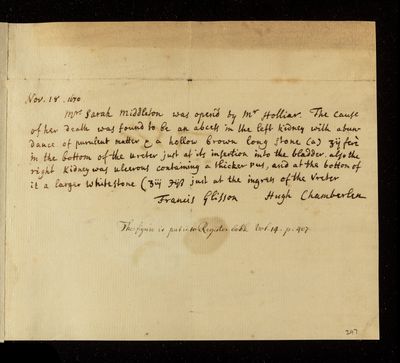 Nov. 18. 1670
Mrs Sarah Middleton was open'd by Mr Hollier. The cause
of her death was found to be an abcess in the left Kidney with abun-
dance of purulent matter & a hollow brown long stone (a) ʒij ferè
in the bottom of the ureter just at its insertion into the bladder. also the
right Kidney was ulcerous containing a thicker pus, and at the botton of
it a larger white stone (ʒij just at the ingress of the Vreter
Francis Glisson Hugh Chamberlen
The figure is put in Register book Vol. 14. p. 407
247